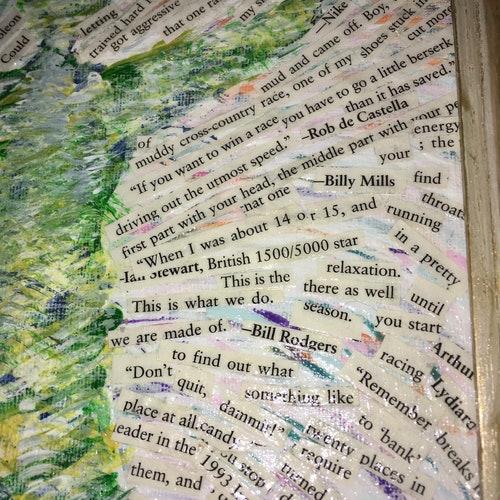 letting
trained hard I
got aggressive
Could
that one ra
my sh
—Nike
mud and came off. Boy,
of
muddy cross-country race, one of my shoes stuck in
cut mor
"If you want to win a race you have to go a little berserk
than it has saved."
driving out the utmost speed." -Rob de Castella
first part with your head, the middle part with your pe
energy
your
; the
that one
—Billy Mills
find
throat
"When I was about 14 or 15, and
running
Ian Stewart, British 1500/5000 star
in a pretty
This is the
relaxation.
This is what we do.
there as well
until
season.
you start
we are made of." —Bill Rodgers
Arthur
to find out what
racing
Lydiard
"Don't
quit,
something like
"Remember
breaks
place at all.
dammit!"
to 'bank'
candy
twenty places in
leader in the
require
1993
you stop
them, and
turned